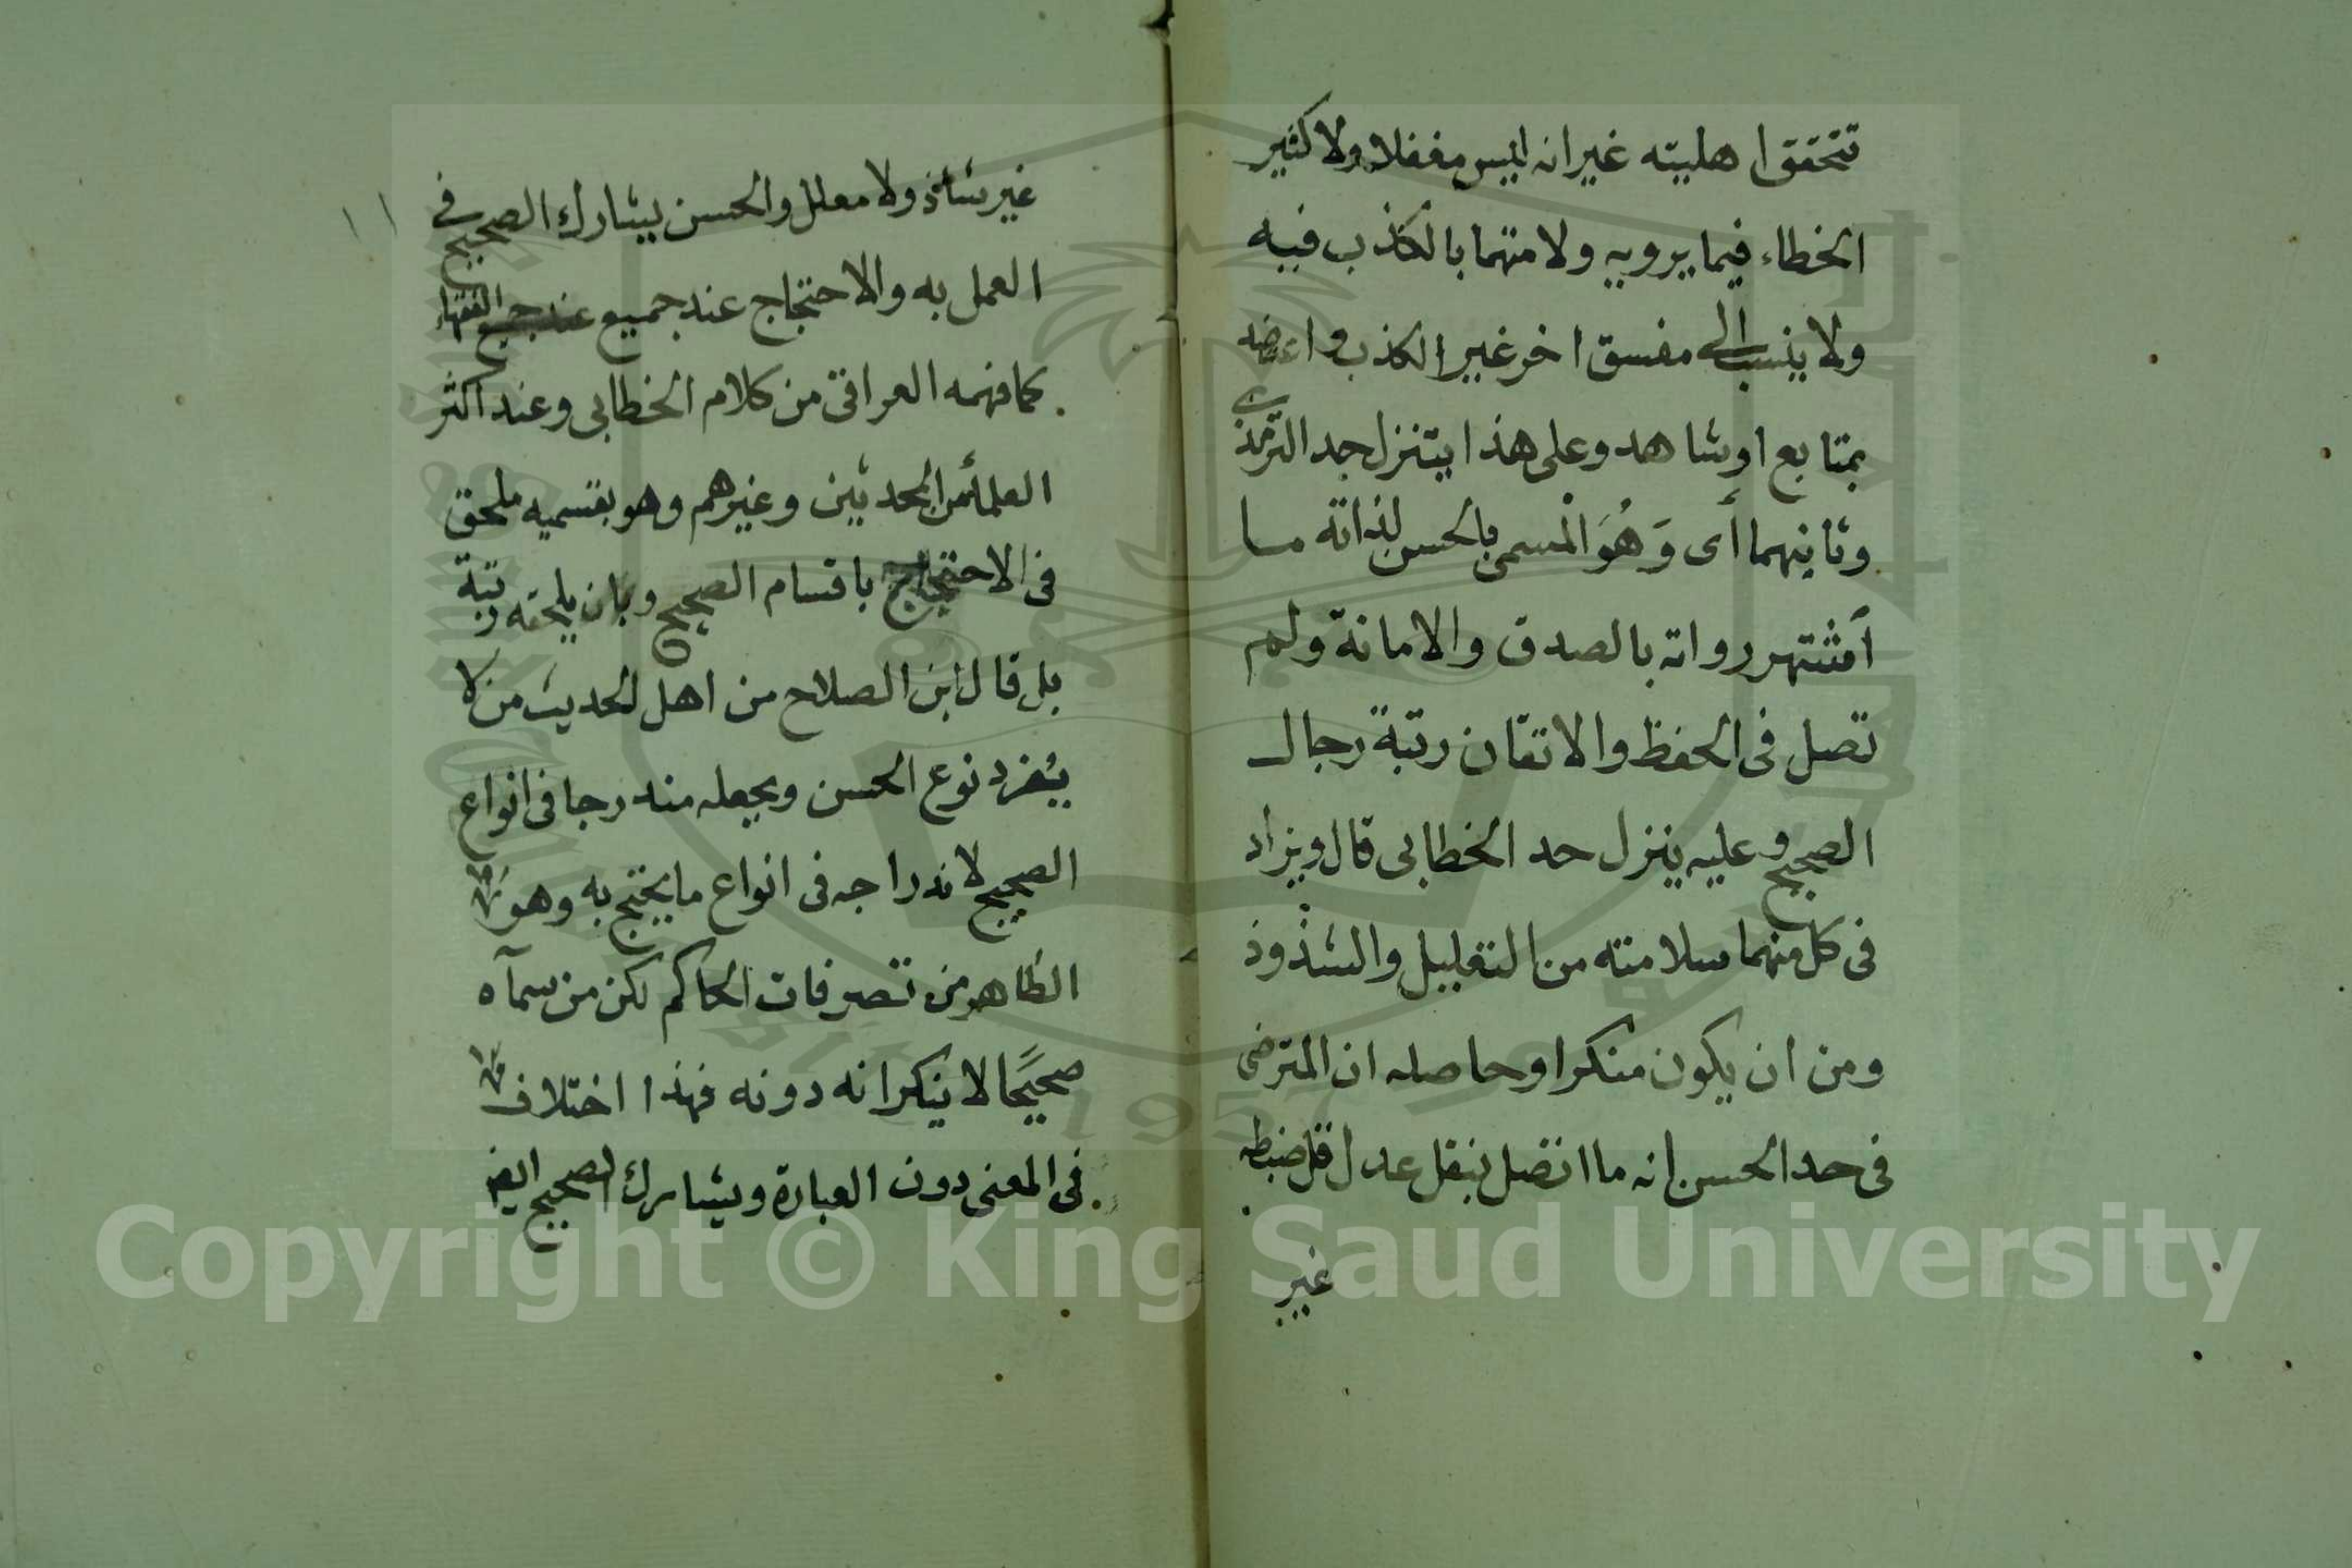 تتحقق اهليته غير انه ليس مغفلا ولا كثير
الخطاء فيما يرويه ولا متهما بالكذب فيه
ولا ينسب الى مفسق اخر غير الكذب واعتضد
بمتابع او شاهد وعلى هذا يتنزل حد الترمذى
وثانيهما أى وَهُوَ المْسمى بالحسن لذاته ما
أشتهر رواته بالصدق والامانة ولم
تصل فى الحفظ والاتقان رتبة رجال
الصحيح وعليه ينزل حد الخطابى قال ويزاد
فى كل منهما سلامته من التعليل والشذوذ
ومن ان يكون منكرا وحاصله ان المترضى
فى حد الحسن انه ما اتصل بنقل عدل قل ضبطه
غير
١١
غير شاذ ولا معلل والحسن يشارك الصحيح فى
العمل به والاحتجاج عند جميع الفقهاء
كما فهمه العراقى من كلام الخطابى وعند اكثر
العلماء من المحدثين وغيرهم وهو بقسميه ملحق
فى الاحتجاج باقسام الصحيح وبان يلحقه رتبة
بل قال ابن الصلاح من اهل الحديث من لا
يفرد نوع الحسن ويجعله مندرجا فى انواع
الصحيح لاندراجه فى انواع ما يحتج به وهو
الظاهر من تصرفات الحاكم لكن من سمآه
صحيحًا لا ينكر انه دونه فهذا اختلاف
فى المعنى دون العبارة ويشارك الصحيح ايضا
Copyright © King Saud University
1957